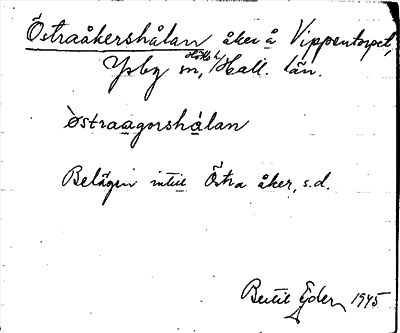 Östraåkershålan åker å Vippentorpet,
Ysby sn, Hall. län.
östraagorshålan
Belägen intill Östra åker, s.d.
Bertil Ejder 1945